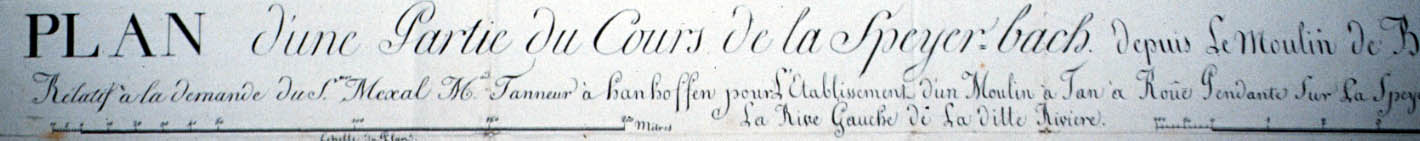 PLAN d'une Partie du Cours de la Speyer=bach. depuis Le Moulin de
Rélatif à la demande du S.ʳ Mexal M.ᵈ Tanneur à hanhoffen pour L'Etablissement d'un Moulin à Tan à Roüe Pendante Sur La Spey
La Rive Gauche de La ditte Riviere.
Mètres
Echelle du Plan